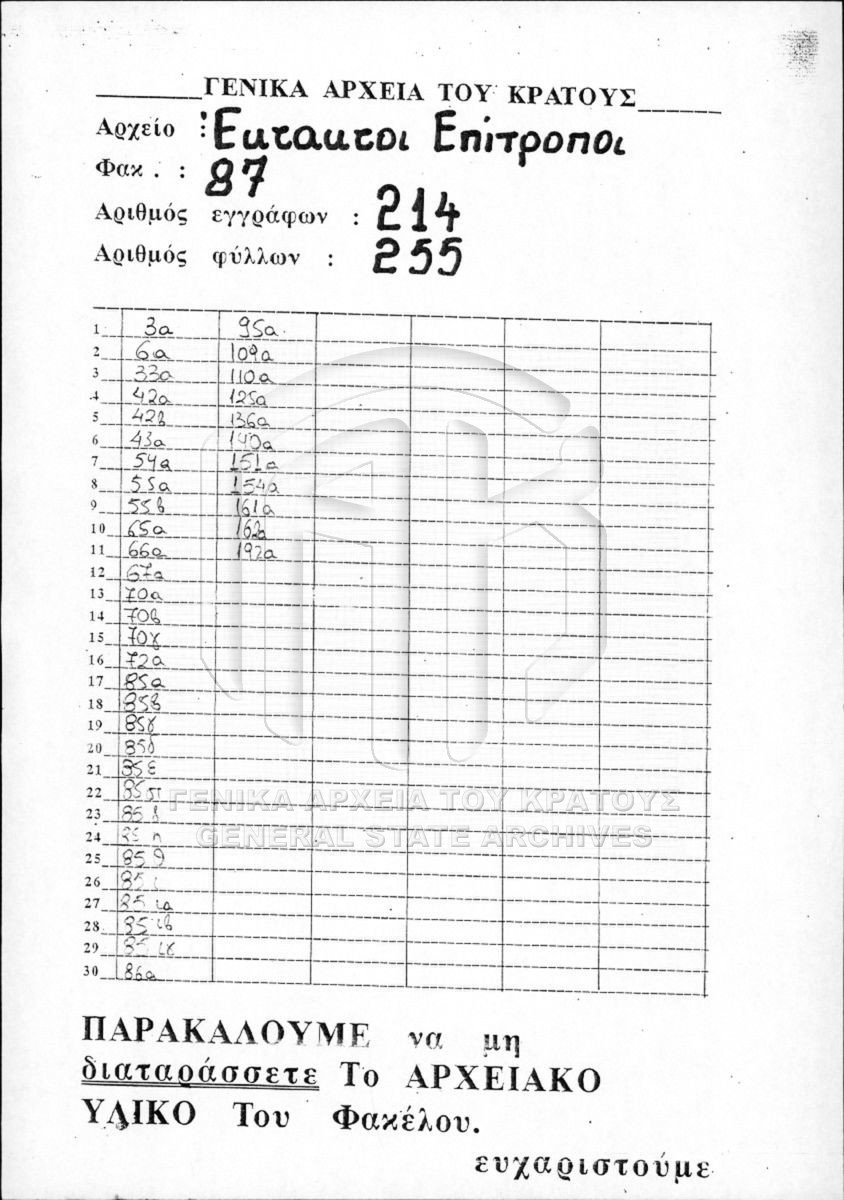 ΓΕΝΙΚΑ ΑΡΧΕΙΑ ΤΟΥ ΚΡΑΤΟΥΣ
Αρχείο : Έκτακτοι Επίτροποι
Φακ . : 87
Αριθμός εγγράφων : 214
Αριθμός φύλλων : 255
1 3α 95α
2 6α 109α
3 33α 110α
4 42α 125α
5 42β 136α
6 43α 140α
7 54α 151α
8 55α 154α
9 55β 161α
10 65α 162α
11 66α 192α
12 67α
13 70α
14 70β
15 70γ
16 72α
17 85α
18 85β
19 85γ
20 85δ
21 85ε
22 85στ
23 85ζ
24 85η
25 85θ
26 85ι
27 85ια
28 85ιβ
29 85ιγ
30 86α
ΓΕΝΙΚΑ ΑΡΧΕΙΑ ΤΟΥ ΚΡΑΤΟΥΣ
GENERAL STATE ARCHIVES
ΠΑΡΑΚΑΛΟΥΜΕ να μη
διαταράσσετε Το ΑΡΧΕΙΑΚΟ
ΥΛΙΚΟ Του Φακέλου.
ευχαριστούμε